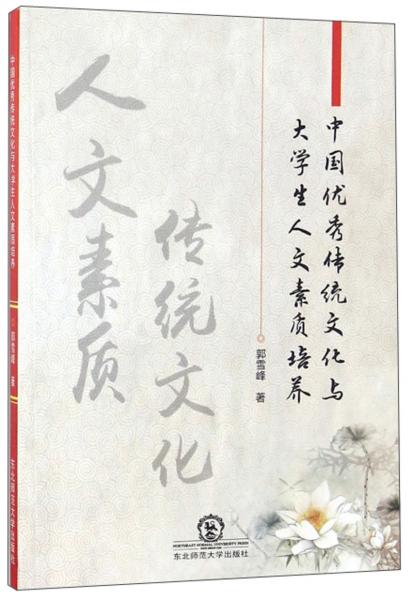 中国优秀传统文化与
大学生人文素质培养
郭雪峰 著
人文素质
传统文化
NORTHEAST NORMAL UNIVERSITY PRESS
东北师范大学出版社
中国优秀传统文化与大学生人文素质培养
郭雪峰 著
东北师范大学出版社